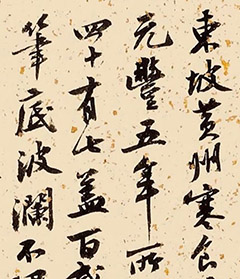 東坡黄州寒食
元豐五年所
四十有七蓋百
筆底波瀾不